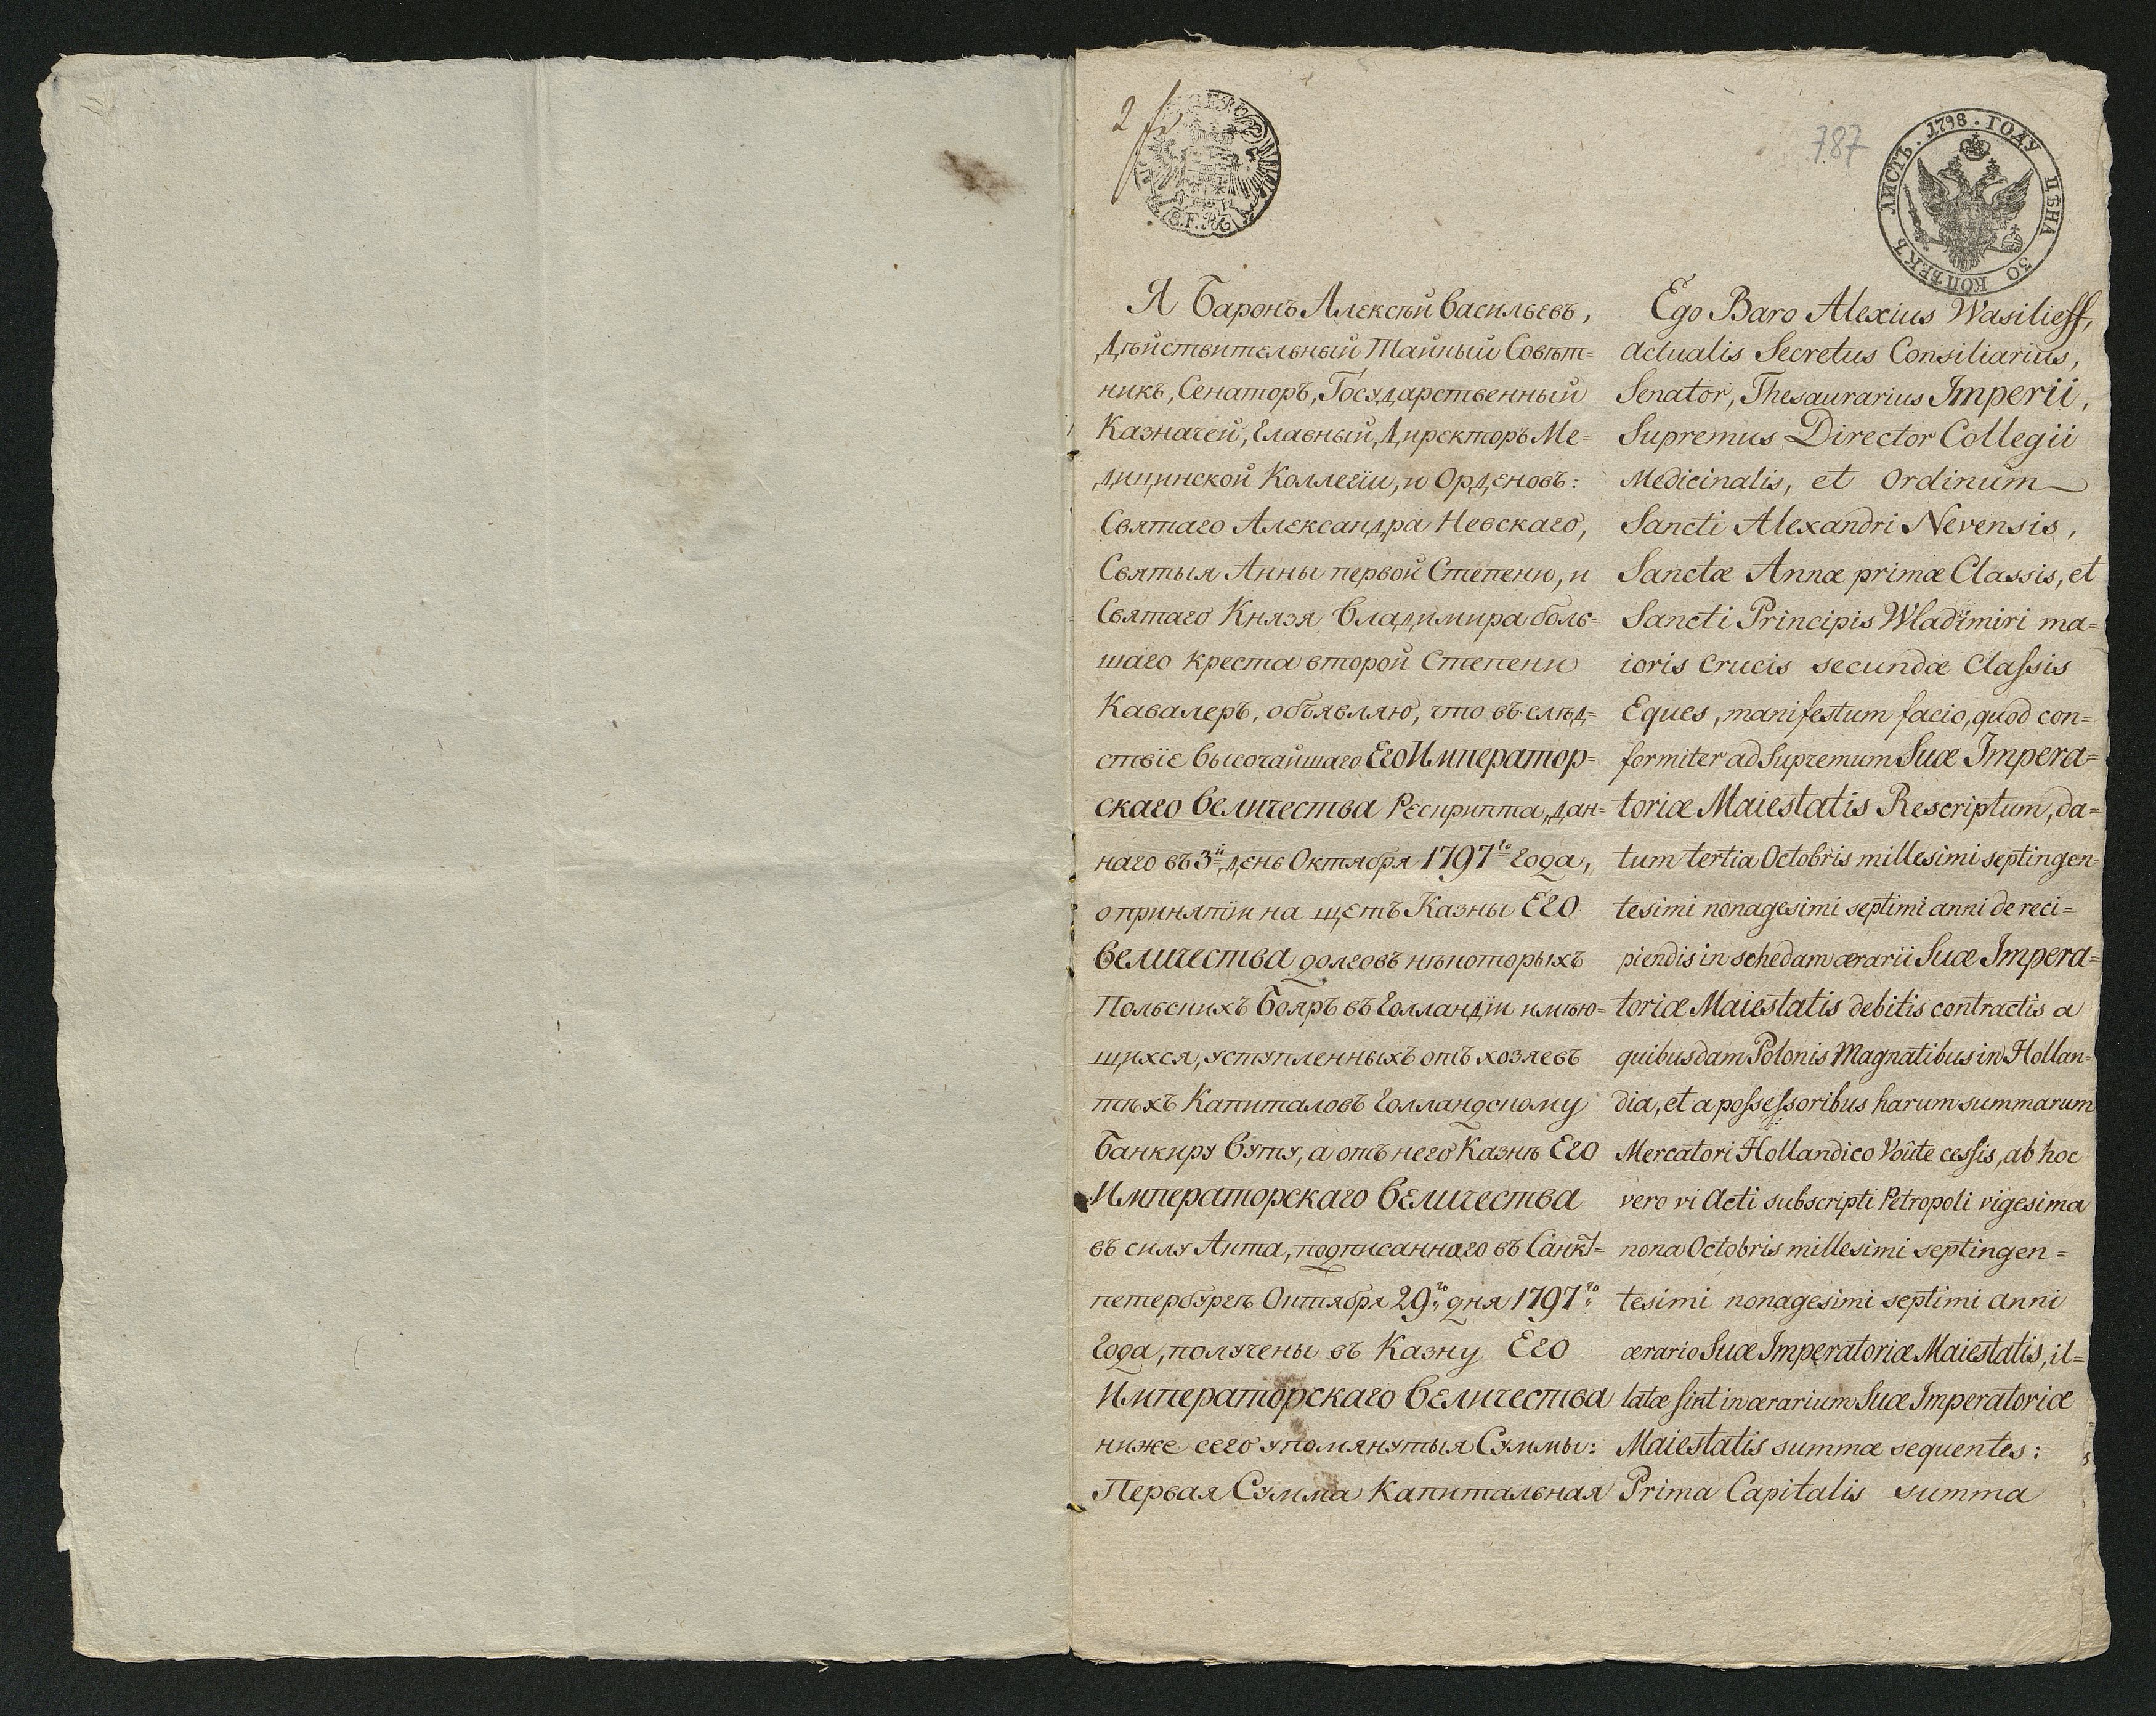 2 fl
787
ЛИСТЪ. 1798. ГОДУ ЦѢНА 50 КОПѢЕКЪ
8.F.R
Я Баронъ Алексѣй Васильевъ,
Дѣйствительный Тайный Совѣт=
никъ, Сенаторъ, Государственный
Казначей, Главный Директоръ Ме=
дицинской Коллегїи, и Орденовъ:
Святаго Александра Невскаго,
Святыя Анны первой Степеню, и
Святаго Князя Владимира боль=
шаго креста второй Степени
Кавалеръ, объявляю, что въ слѣд=
ствїе Высочайшаго Его Император=
скаго Величества Рескрипта, дан=
наго въ 3й день Октября 1797го года,
о принятїи на щетъ Казны Его
Величества долговъ нѣкоторыхъ
Польскихъ Бояръ въ Голландїи имѣю=
щихся, уступленныхъ отъ хозяевъ
тѣхъ Капиталовъ Голландскому
Банкиру Вуту, а отъ него Казнѣ Его
Императорскаго Величества
въ силу Акта, подписаннаго въ Санкт=
петербургѣ Октября 29го дня 1797го
Года, получены въ Казну Его
Императорскаго Величества
ниже сего упомянутыя Суммы:
Первая Сумма Капитальная
Ego Baro Alexius Wasilieff,
Actualis Secretus Consiliarius,
Senator, Thesaurarius Imperii,
Supremus Director Collegii
Medicinalis, et Ordinum
Sancti Alexandri Nevensis,
Sanctæ Annæ primæ Classis, et
Sancti Principis Wladimiri ma=
ioris Crucis secundæ Claſsis
Eques, manifestum facio, quod con=
formiter ad Supremum Suæ Impera=
toriæ Maiestatis Rescriptum, da=
tum tertia Octobris millesimi septingen=
tesimi nonagesimi septimi anni de reci=
piendis in schedam ærarii Suæ Impera=
toriæ Maiestatis debitis contractis a
quibusdam Polonis Magnatibus in Hollan=
dia, et a poſseſsoribus harum summarum
Mercatori Hollandico Voûte ceſsis, ab hoc
vero vi Acti subscripti Petropoli vigesima
nona Octobris millesimi septingen=
tesimi nonagesimi septimi anni
ærario Suæ Imperatoriæ Maiestatis, il=
latæ sint in ærarium Suæ Imperatoriæ
Maiestatis summæ sequentes:
Prima Capitalis summa